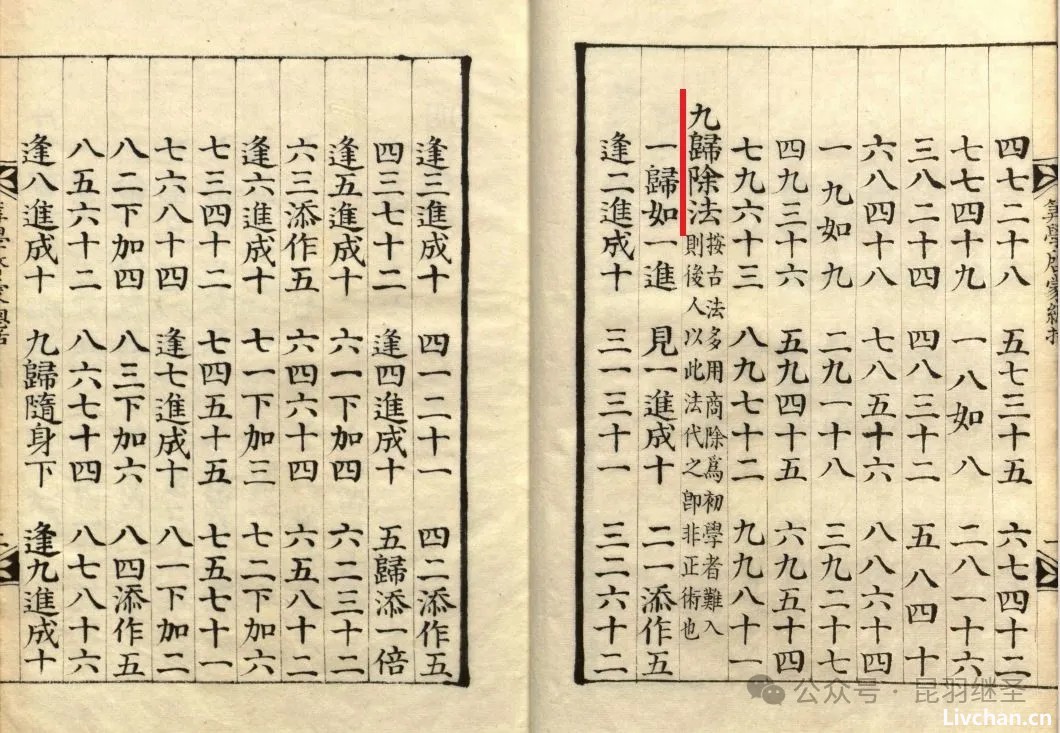 四七二十八 五七三十五 六七四十二
七七四十九 一八如八 二八一十六
三八二十四 四八三十二 五八四十
六八四十八 七八五十六 八八六十四
一九如九 二九一十八 三九二十七
四九三十六 五九四十五 六九五十四
七九六十三 八九七十二 九九八十一
九歸除法
按古法多用商除為初學者難入
則後人以此法代之即非正術也
一歸如一進 見一進成十 二一添作五
逢二進成十 三一三十一 三二六十二
逢三進成十 四一二十二 四二添作五
四三七十二 逢四進成十 五歸添一倍
逢五進成十 六一下加四 六二三十二
六三添作五 六四六十四 六五八十二
逢六進成十 七一下加三 七二下加六
七三四十二 七四五十五 七五七十一
七六八十四 逢七進成十 八一下加二
八二下加四 八三下加六 八四添作五
八五六十二 八六七十四 八七八十六
逢八進成十 九歸隨身下 逢九進成十
公众号·昆羽继圣
Livchan.cn